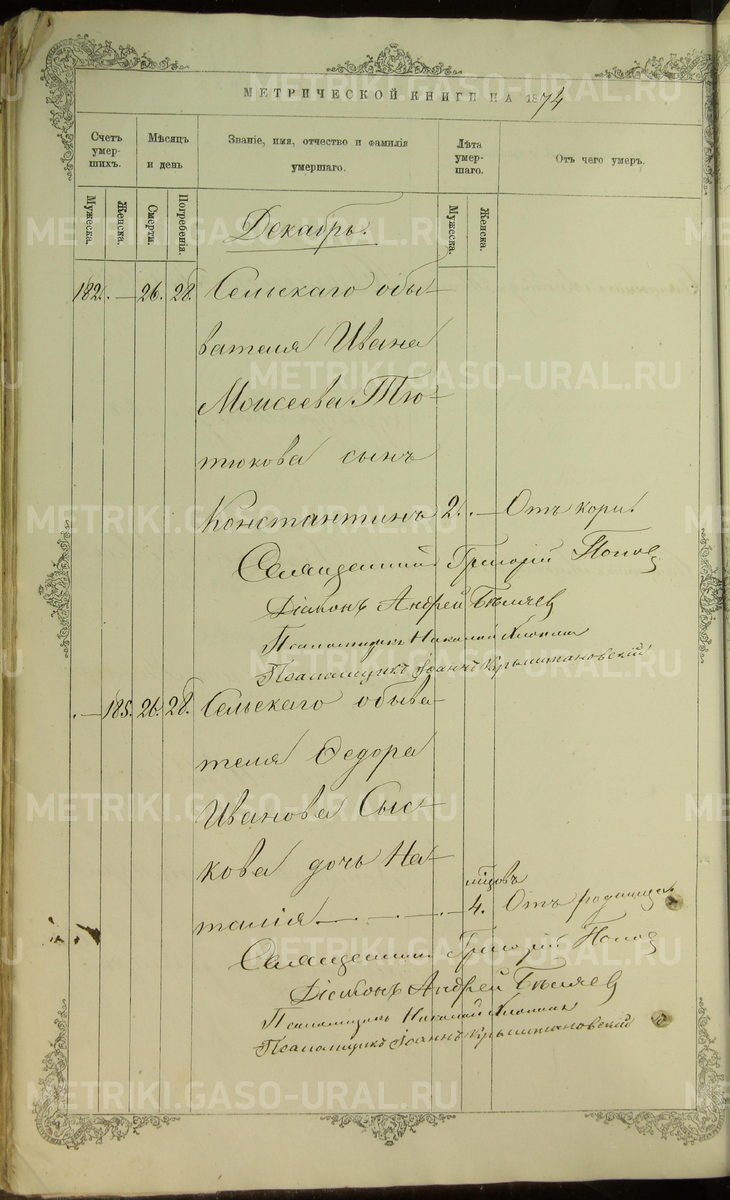 МЕТРИЧЕСКОЙ КНИГИ НА 1874
Счетъ умер-шихъ. Мѣсяцъ и день Званіе, имя, отчество и фамилія умершаго. Лѣта умер-шаго. Отъ чего умеръ.
Мужеска. Женска. Смерти. Погребенія. Мужеска. Женска.
Декабрь.
182. — 26. 28. Сельскаго обы-
вателя Ивана
Моисеева Тю-
тюкова сынъ
Константинъ 2. — Отъ кори.
Священникъ Григорій Поповъ
Діаконъ Андрей Бѣляевъ
Псаломщикъ Николай
Псаломщикъ Іоаннъ Крыжтановскій
— 185. 26. 28. Сельскаго обыва
теля Ѳедора
Иванова Сыс-
кова дочь На-
мѣсцовъ
талія — 4. Отъ родимца.
Священникъ Григорій Поповъ
Діаконъ Андрей Бѣляевъ
Псаломщикъ Николай
Псаломщикъ Іоаннъ Крыжтановскій
METRIKI.GASO-URAL.RU